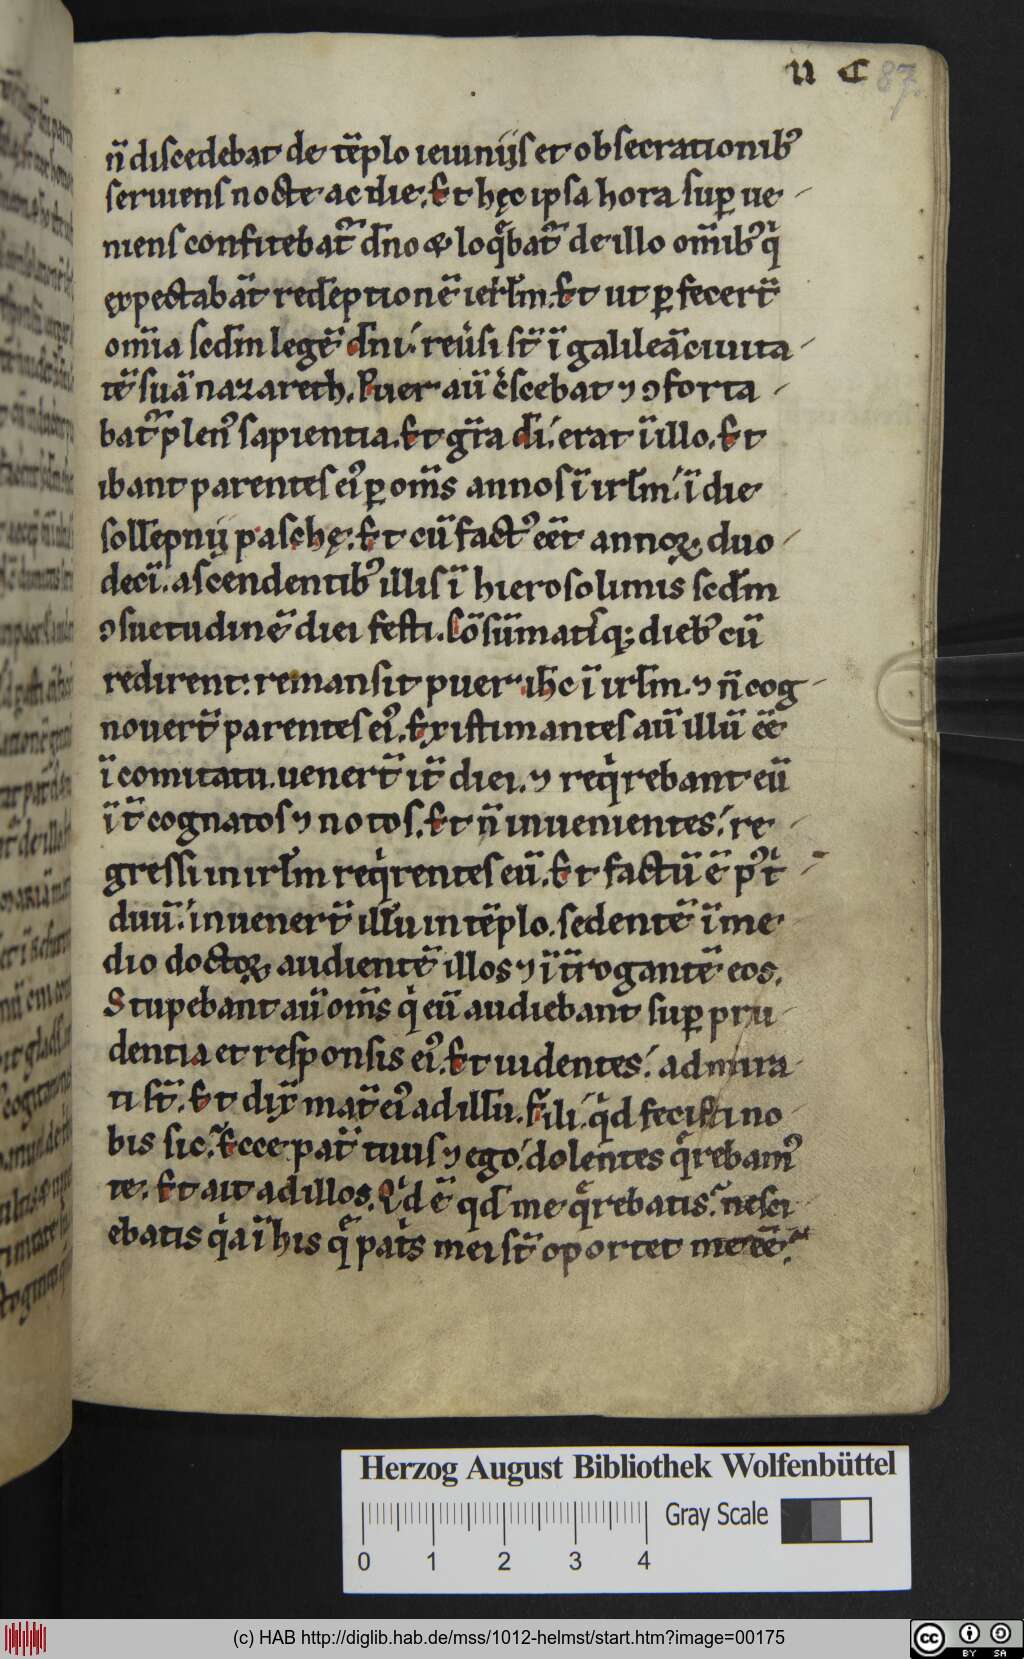 ıı C 87.
n̄ discedebat de tēplo ieiunijs et obsecrationib᷒
seruiens nocte ac die. Et hęc ipsa hora suꝑ ue-
niens confitebat᷑ dn̄o & loqͣbat᷑ de illo om̄ib᷒ qͥ
expectabāt redēptionē ierl̄m. Et ut ꝑfecert̄
om̄ia scd̄m legē dn̄i. reůsi st̄ ī galileā ciuita-
tē suā nazareth. Puer aū cͤscebat ⁊ ꝯforta-
bat᷑ plen᷒ sapientia. Et gr̄a dī. erat ī illo. Et
ibant parentes ei᷒ ꝑ om̄s annos ī irl̄m. ī die
soll̄epnij paschę. Et cū fact᷒ eēt annoꝝ duo-
decī. ascendentib᷒ illis ī hierosolimis scd̄m
ꝯsuetudinē diei festi. Cōsūmatisqꝫ dieb᷒ cū
redirent. remansit puer ih̄c ī irl̄m. ⁊ n̄ cog-
nouert̄ parentes ei᷒. Existimantes aū illū eē
ī comitatu. uenert̄ it̄ diei. ⁊ reqͥrebant eū
īt̄ cognatos ⁊ notos. Et n̄ inuenientes. re-
gressi in irl̄m reqͥrentes eū. Et factū ē p᷒t ͥ-
duū. inuenert̄ ill̄u in tēplo. sedentē ī me-
dio doctoꝝ audientē illos ⁊ īt̄rogantē eos.
Stupebant aū om̄s qͥ eū audiebant suꝑ pru-
dentia et responsis ei᷒. Et uidentes. admira-
ti st̄. Et dix̄ mat̄ ei᷒ ad ill̄u. Fili. qͥd fecisti no-
bis sic. Ecce pat̄ tuus ⁊ ego. dolentes qͣrebam᷒
te. Et ait ad illos. Qͥd ē qd̄ me qͣrebatis. nesci-
ebatis qͥa ī his qͣ patͥs mei st̄ oportet me eē.
Herzog August Bibliothek Wolfenbüttel
Gray Scale
0 1 2 3 4
(c) HAB http://diglib.hab.de/mss/1012-helmst/start.htm?image=00175
cc BY SA